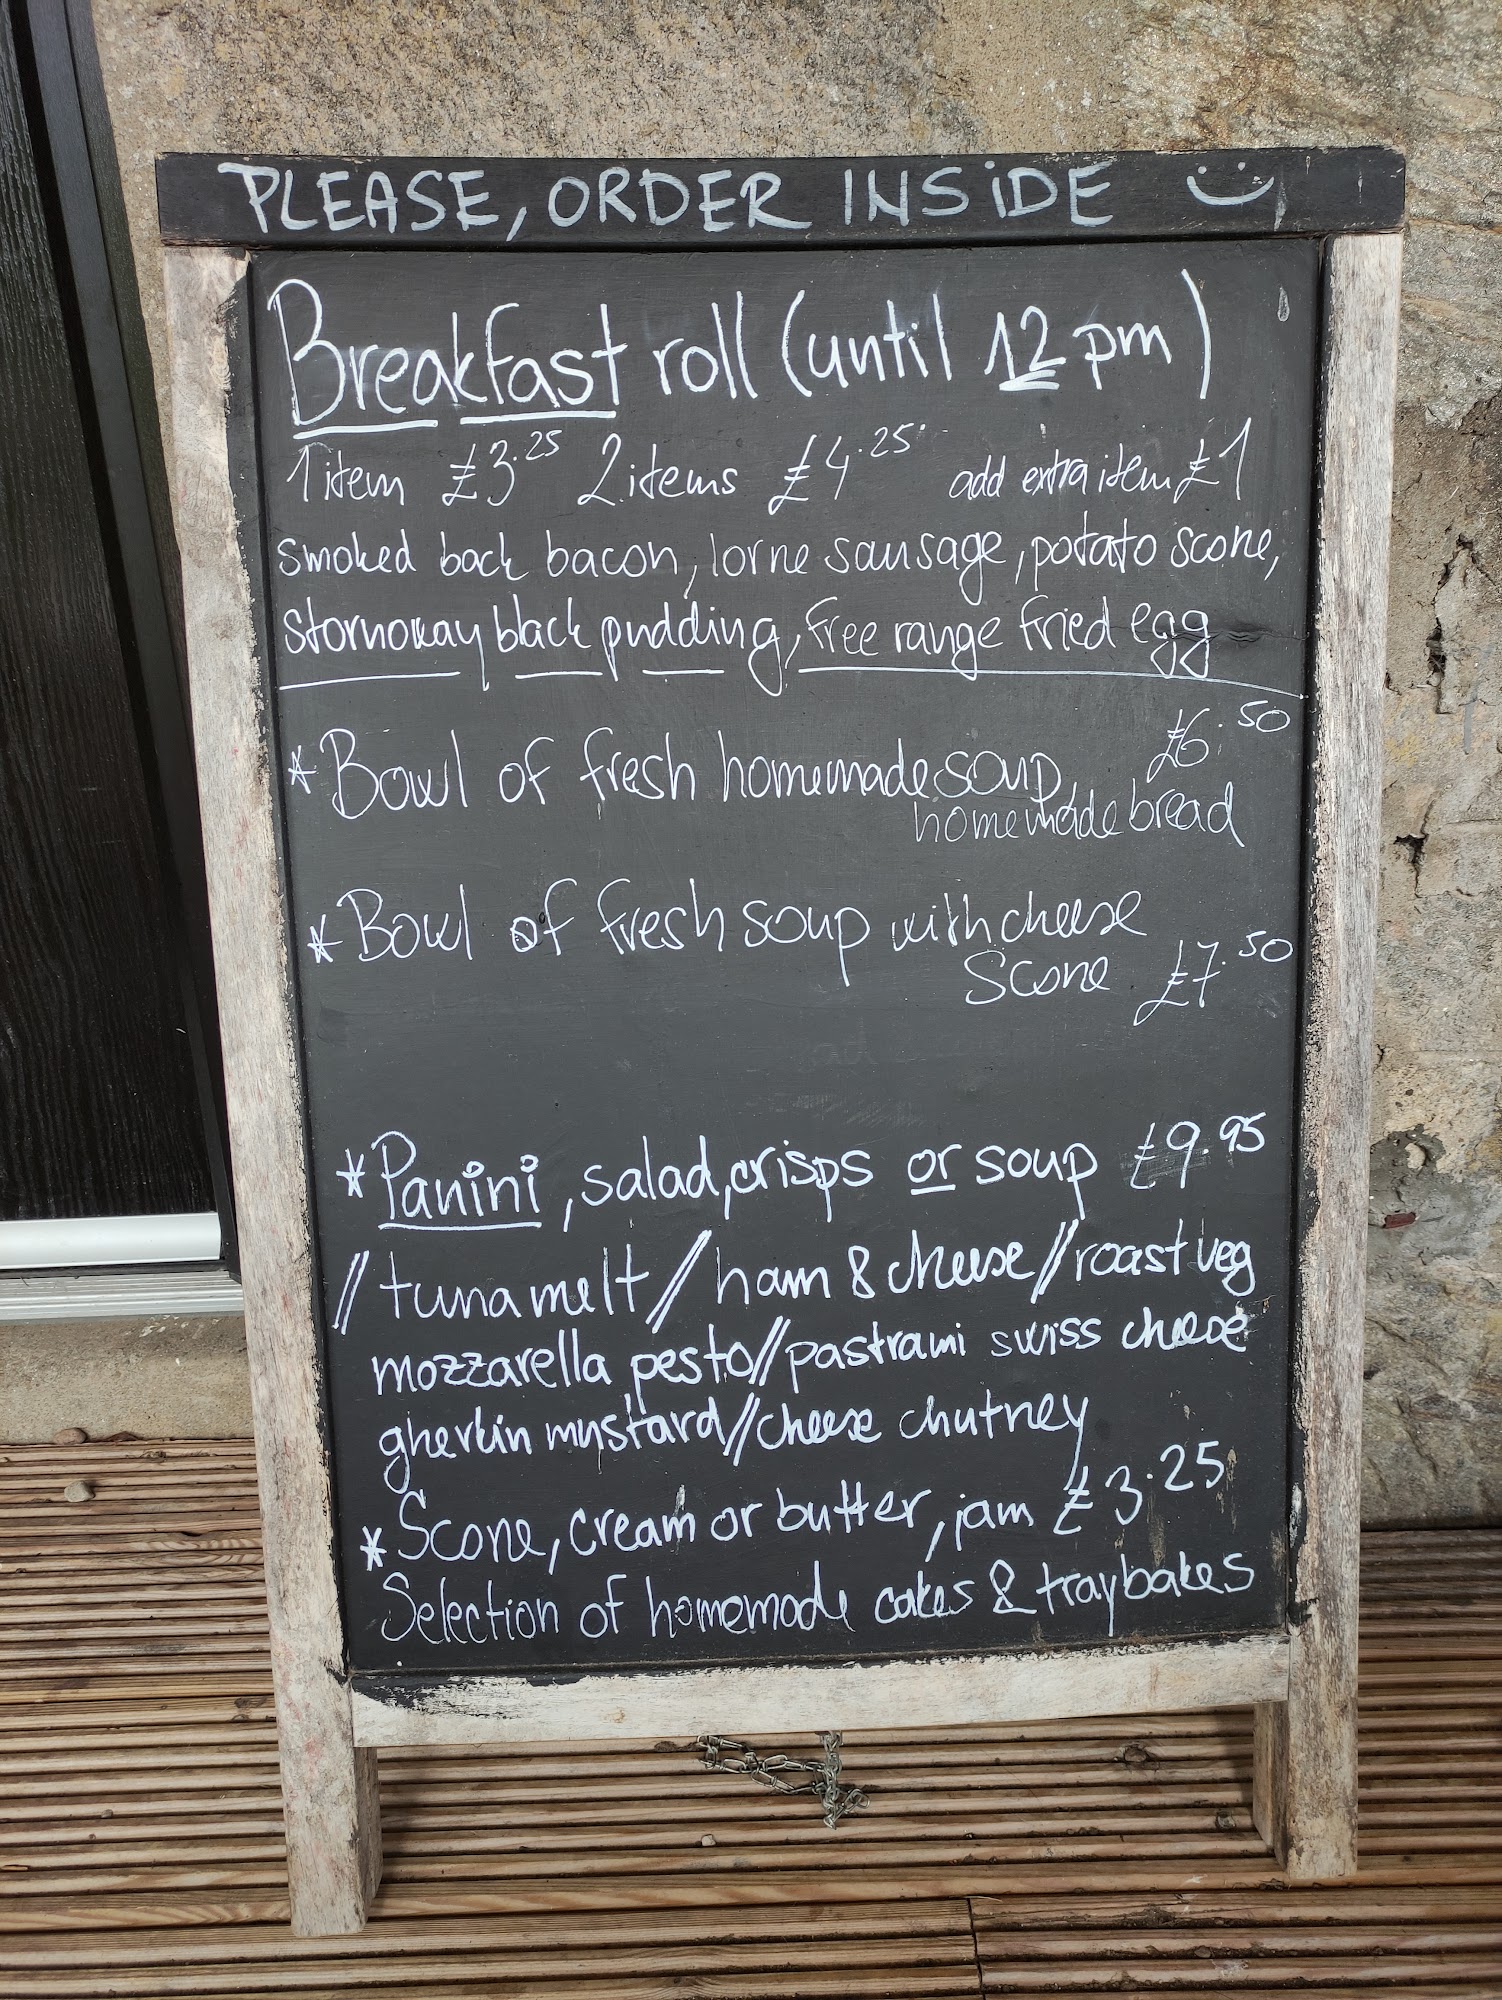 PLEASE, ORDER INSiDE
Breakfast roll (until 12 pm)
1 item £3.25 2 items £4.25 add extra item £1
smoked back bacon, lorne sausage, potato scone,
stornoway black pudding, free range fried egg
* Bowl of fresh homemade soup £6.50
homemade bread
* Bowl of fresh soup with cheese
Scone £7.50
* Panini, salad, crisps or soup £9.95
// tuna melt // ham & cheese // roast veg
mozzarella pesto // pastrami swiss cheese
gherkin mustard // cheese chutney
* Scone, cream or butter, jam £3.25
Selection of homemade cakes & traybakes